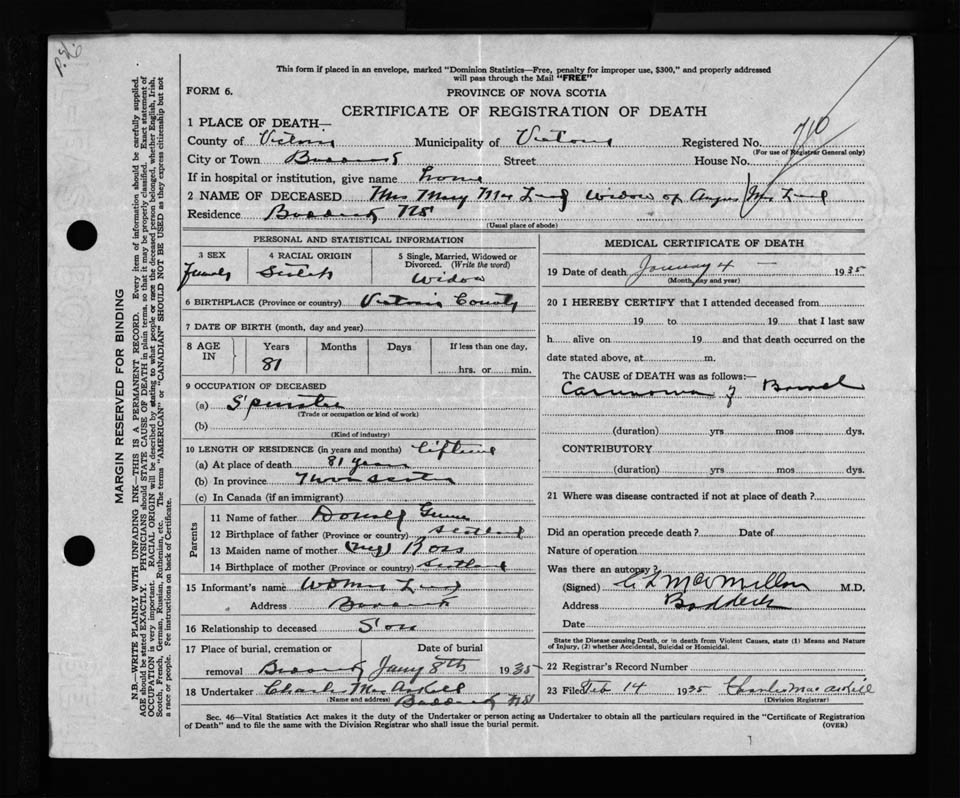 This form if placed in an envelope, marked "Dominion Statistics—Free, penalty for improper use, $300," and properly addressed
will pass through the Mail "FREE"
FORM 6.
PROVINCE OF NOVA SCOTIA
CERTIFICATE OF REGISTRATION OF DEATH
1 PLACE OF DEATH—
County of Victoria Municipality of Victoria Registered No. 710
(For use of Registrar General only)
City or Town Baddeck Street House No.
If in hospital or institution, give name home
2 NAME OF DECEASED Mrs Mary Mac Widow of Angus
Residence Baddeck NS
(Usual place of abode)
PERSONAL AND STATISTICAL INFORMATION
3 SEX
4 RACIAL ORIGIN
5 Single, Married, Widowed or
Divorced. (Write the word)
Female
Widow
6 BIRTHPLACE (Province or country) Victoria County
7 DATE OF BIRTH (month, day and year)
8 AGE IN
Years Months Days If less than one day,
81
hrs. or min.
9 OCCUPATION OF DECEASED
(a) Spinster
(Trade or occupation or kind of work)
(b)
(Kind of industry)
10 LENGTH OF RESIDENCE (in years and months) lifetime
(a) At place of death 81 years
(b) In province Nova Scotia
(c) In Canada (if an immigrant)
Parents
11 Name of father Donald
12 Birthplace of father (Province or country) Scotland
13 Maiden name of mother Ross
14 Birthplace of mother (Province or country) Scotland
15 Informant's name
Address Baddeck
16 Relationship to deceased Son
17 Place of burial, cremation or Date of burial
removal Baddeck Jany 8th 1935
18 Undertaker Charles MacAskill
(Name and address) Baddeck NS
MEDICAL CERTIFICATE OF DEATH
19 Date of death January 4 1935
(Month, day and year)
20 I HEREBY CERTIFY that I attended deceased from
19 to 19 that I last saw
h alive on 19 and that death occurred on the
date stated above, at m.
The CAUSE of DEATH was as follows:—
Carcinoma of Bowel
(duration) yrs mos dys.
CONTRIBUTORY
(duration) yrs mos dys.
21 Where was disease contracted if not at place of death?
Did an operation precede death? Date of
Nature of operation
Was there an autopsy?
(Signed) C L MacMillan M.D.
Address Baddeck
Date
State the Disease causing Death, or in death from Violent Causes, state (1) Means and Nature
of Injury, (2) whether Accidental, Suicidal or Homicidal.
22 Registrar's Record Number
23 Filed Feb 14 1935 Charles MacAskill
(Division Registrar)
Sec. 46—Vital Statistics Act makes it the duty of the Undertaker or person acting as Undertaker to obtain all the particulars required in the "Certificate of Registration
of Death" and to file the same with the Division Registrar who shall issue the burial permit.
(OVER)
MARGIN RESERVED FOR BINDING
N.B.—WRITE PLAINLY WITH UNFADING INK—THIS IS A PERMANENT RECORD. Every item of information should be carefully supplied.
AGE should be stated EXACTLY. PHYSICIANS should STATE CAUSE OF DEATH in plain terms, so that it may be properly classified. Exact statement of
OCCUPATION is very important. RACIAL ORIGIN will be described by stating to what people or race the deceased person belonged, whether English, Irish,
Scotch, French, German, Russian, Ruthenian, etc. The terms "AMERICAN" or "CANADIAN" SHOULD NOT BE USED as they express citizenship but not
a race or people. Fee instructions on back of Certificate.